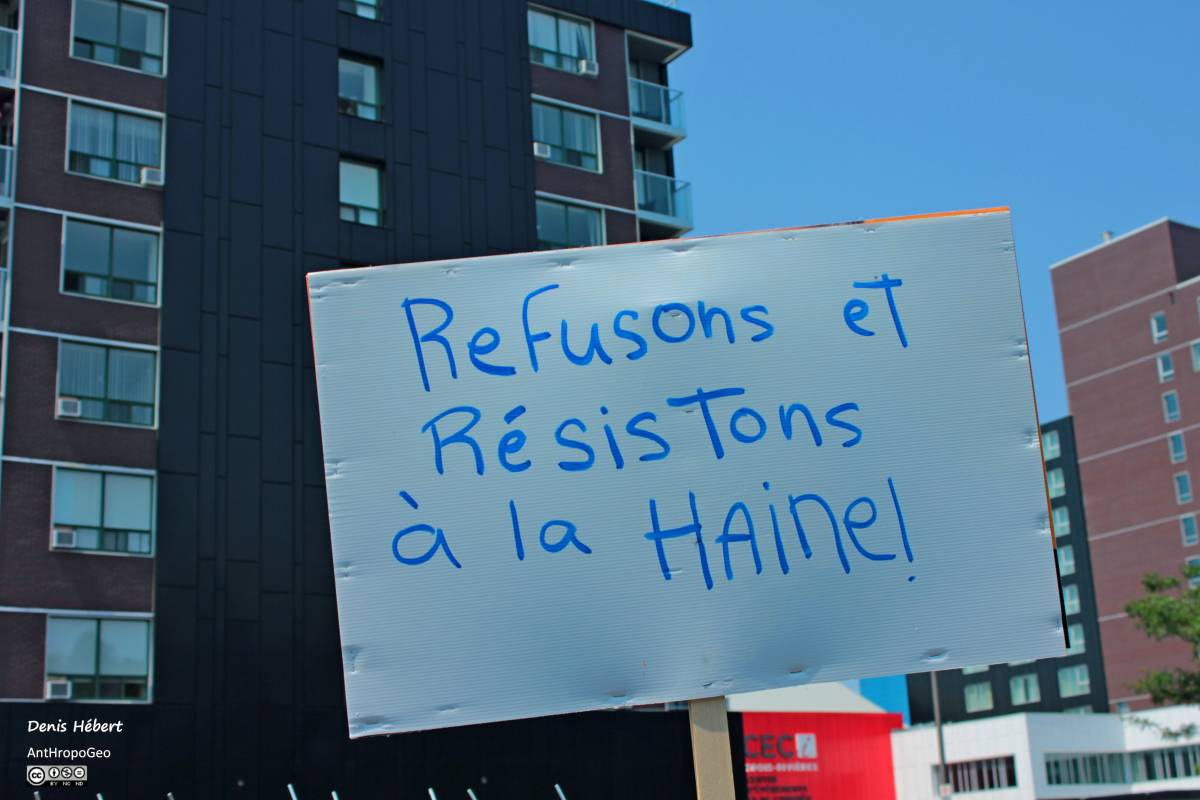 Refusons et
Résistons
à la HAine!
CEC
Denis Hébert
AntHropoGeo
cc
BY NC ND